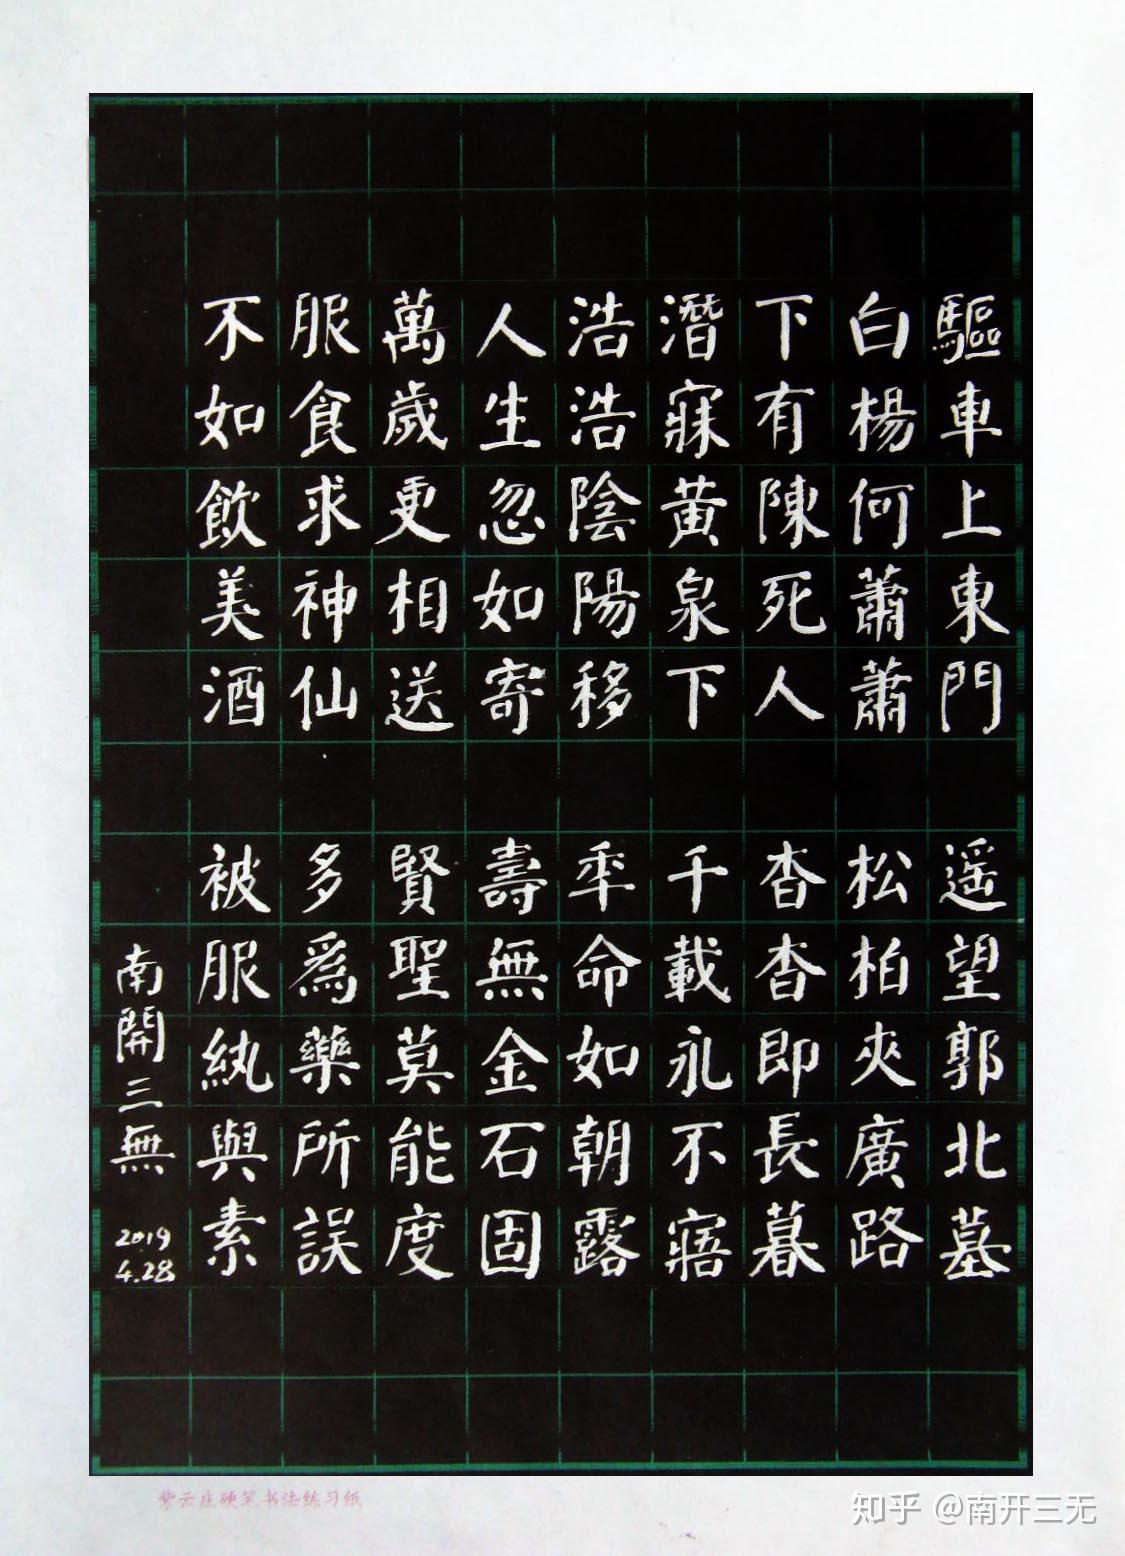 驅車上東門 遥望郭北墓
白楊何蕭蕭 松柏夾廣路
下有陳死人 杳杳即長暮
潛寐黃泉下 千載永不寤
浩浩陰陽移 年命如朝露
人生忽如寄 壽無金石固
萬歲更相送 賢聖莫能度
服食求神仙 多爲藥所誤
不如飲美酒 被服紈與素
南開三無 2019 4.28
紫云庄硬笔书法练习纸
知乎 @南开三无